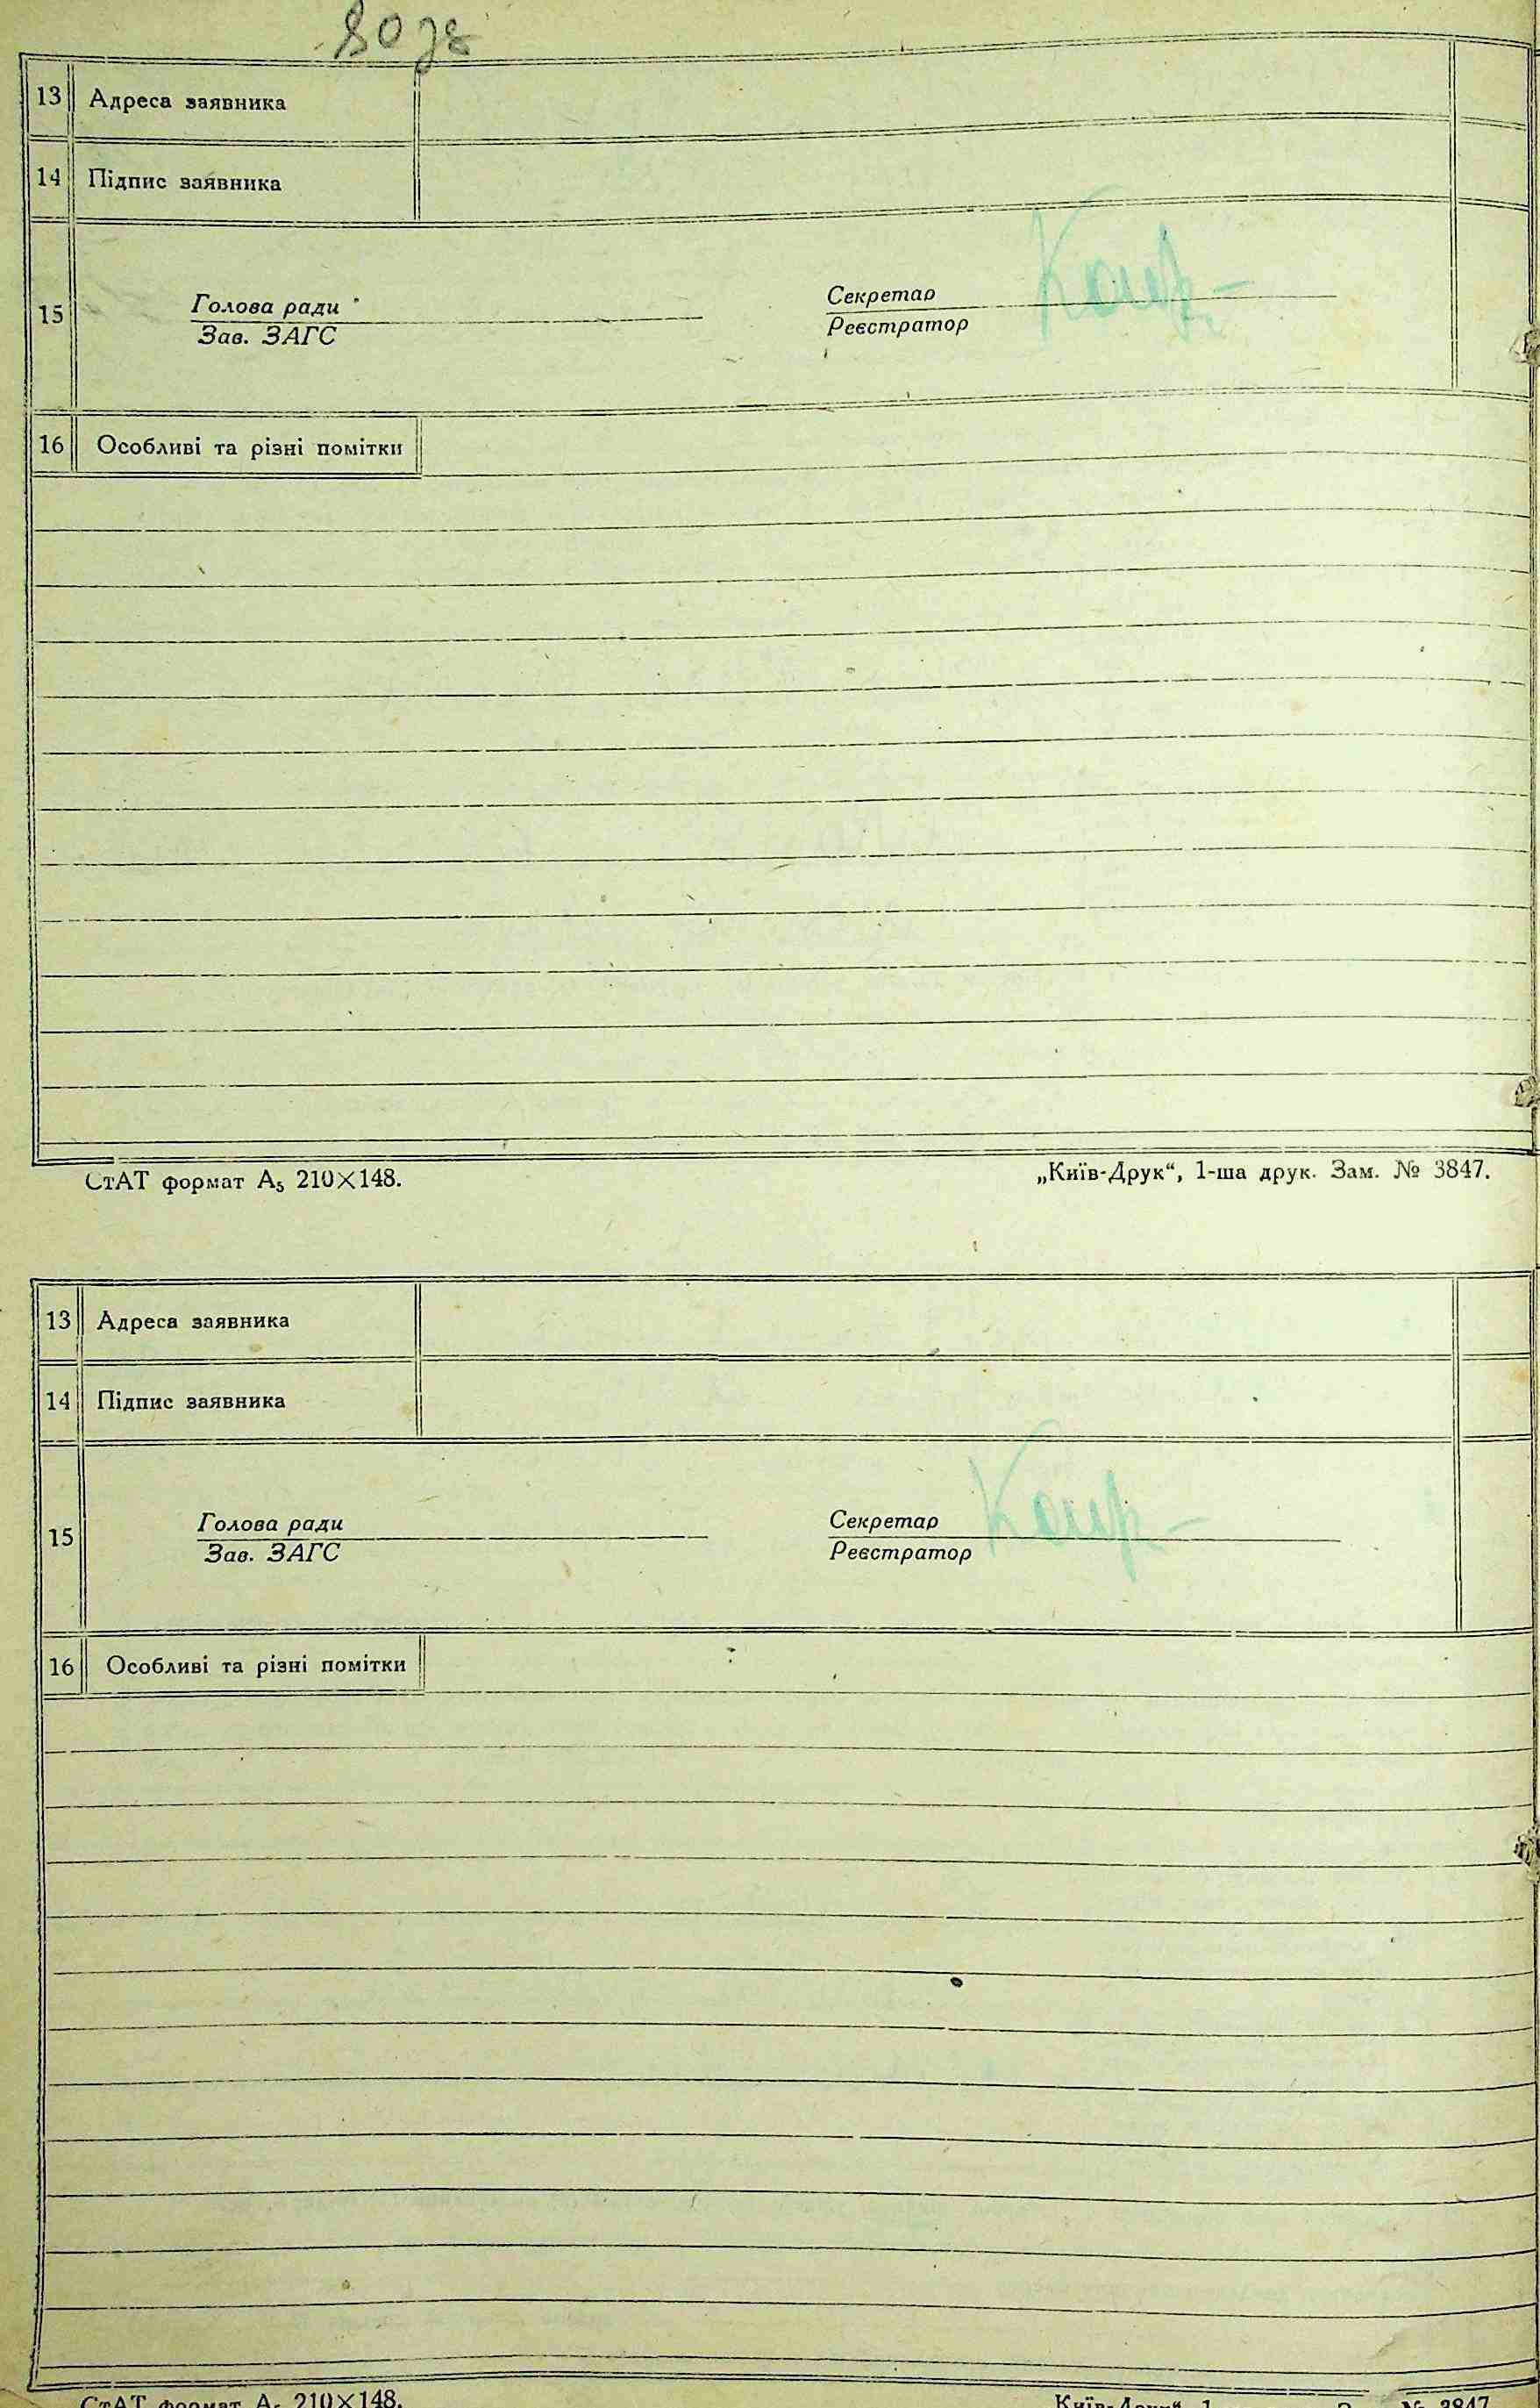 13 Адреса заявника
14 Підпис заявника
15 Голова ради Секретар
Зав. ЗАГС Реєстратор
16 Особливі та різні помітки
СтАТ формат А₅ 210×148. „Київ-Друк“, 1-ша друк. Зам. № 3847.
13 Адреса заявника
14 Підпис заявника
15 Голова ради Секретар
Зав. ЗАГС Реєстратор
16 Особливі та різні помітки
СтАТ формат А₅ 210×148. „Київ-Друк“, 1 № 3847.